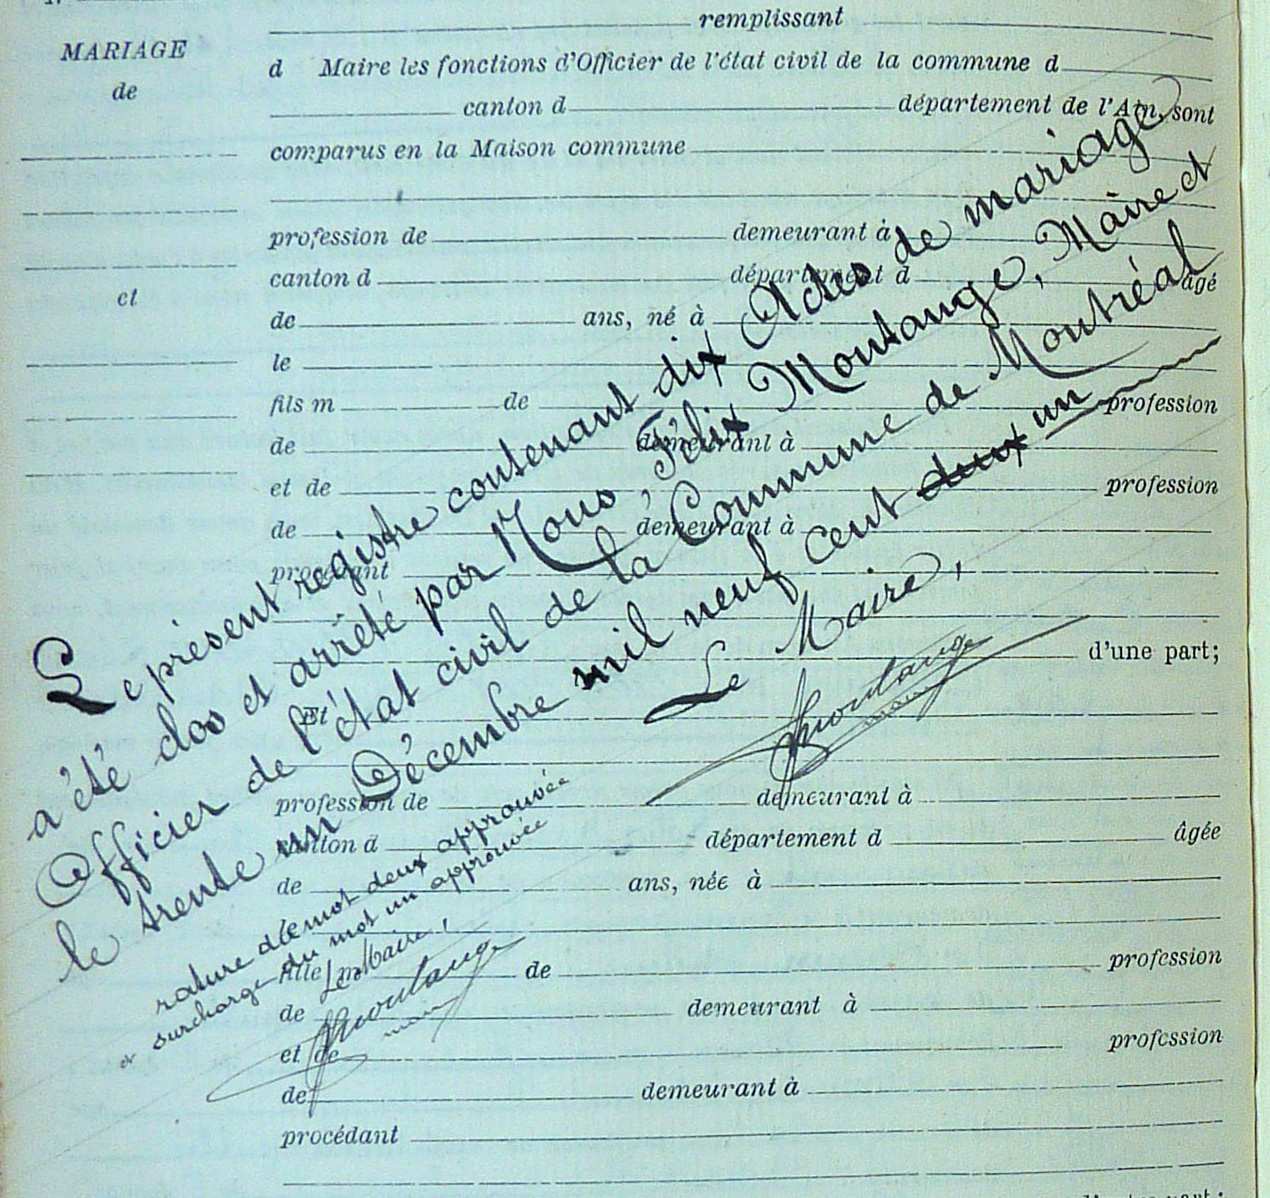 remplissant
MARIAGE
d Maire les fonctions d'Officier de l'état civil de la commune d
de
canton d département de l'Ain, sont
comparus en la Maison commune
profession de demeurant à
canton d département d âgé
et
de ans, né à
le
fils m de profession
de demeurant à
et de profession
de demeurant à
procédant
d'une part;
Et
profession de demeurant à
canton d département d âgée
de ans, née à
fille m de profession
de demeurant à
et de profession
de demeurant à
procédant
Le présent registre contenant dix Actes de mariage
a été clos et arrêté par Nous, Félix Moutange, Maire et
Officier de l'état civil de la Commune de Montréal
le trente un Décembre mil neuf cent deux un
Le Maire,
FMoutange
maire
rature de mot deux approuvée
et surcharge du mot un approuvée
Le Maire,
FMoutange
maire